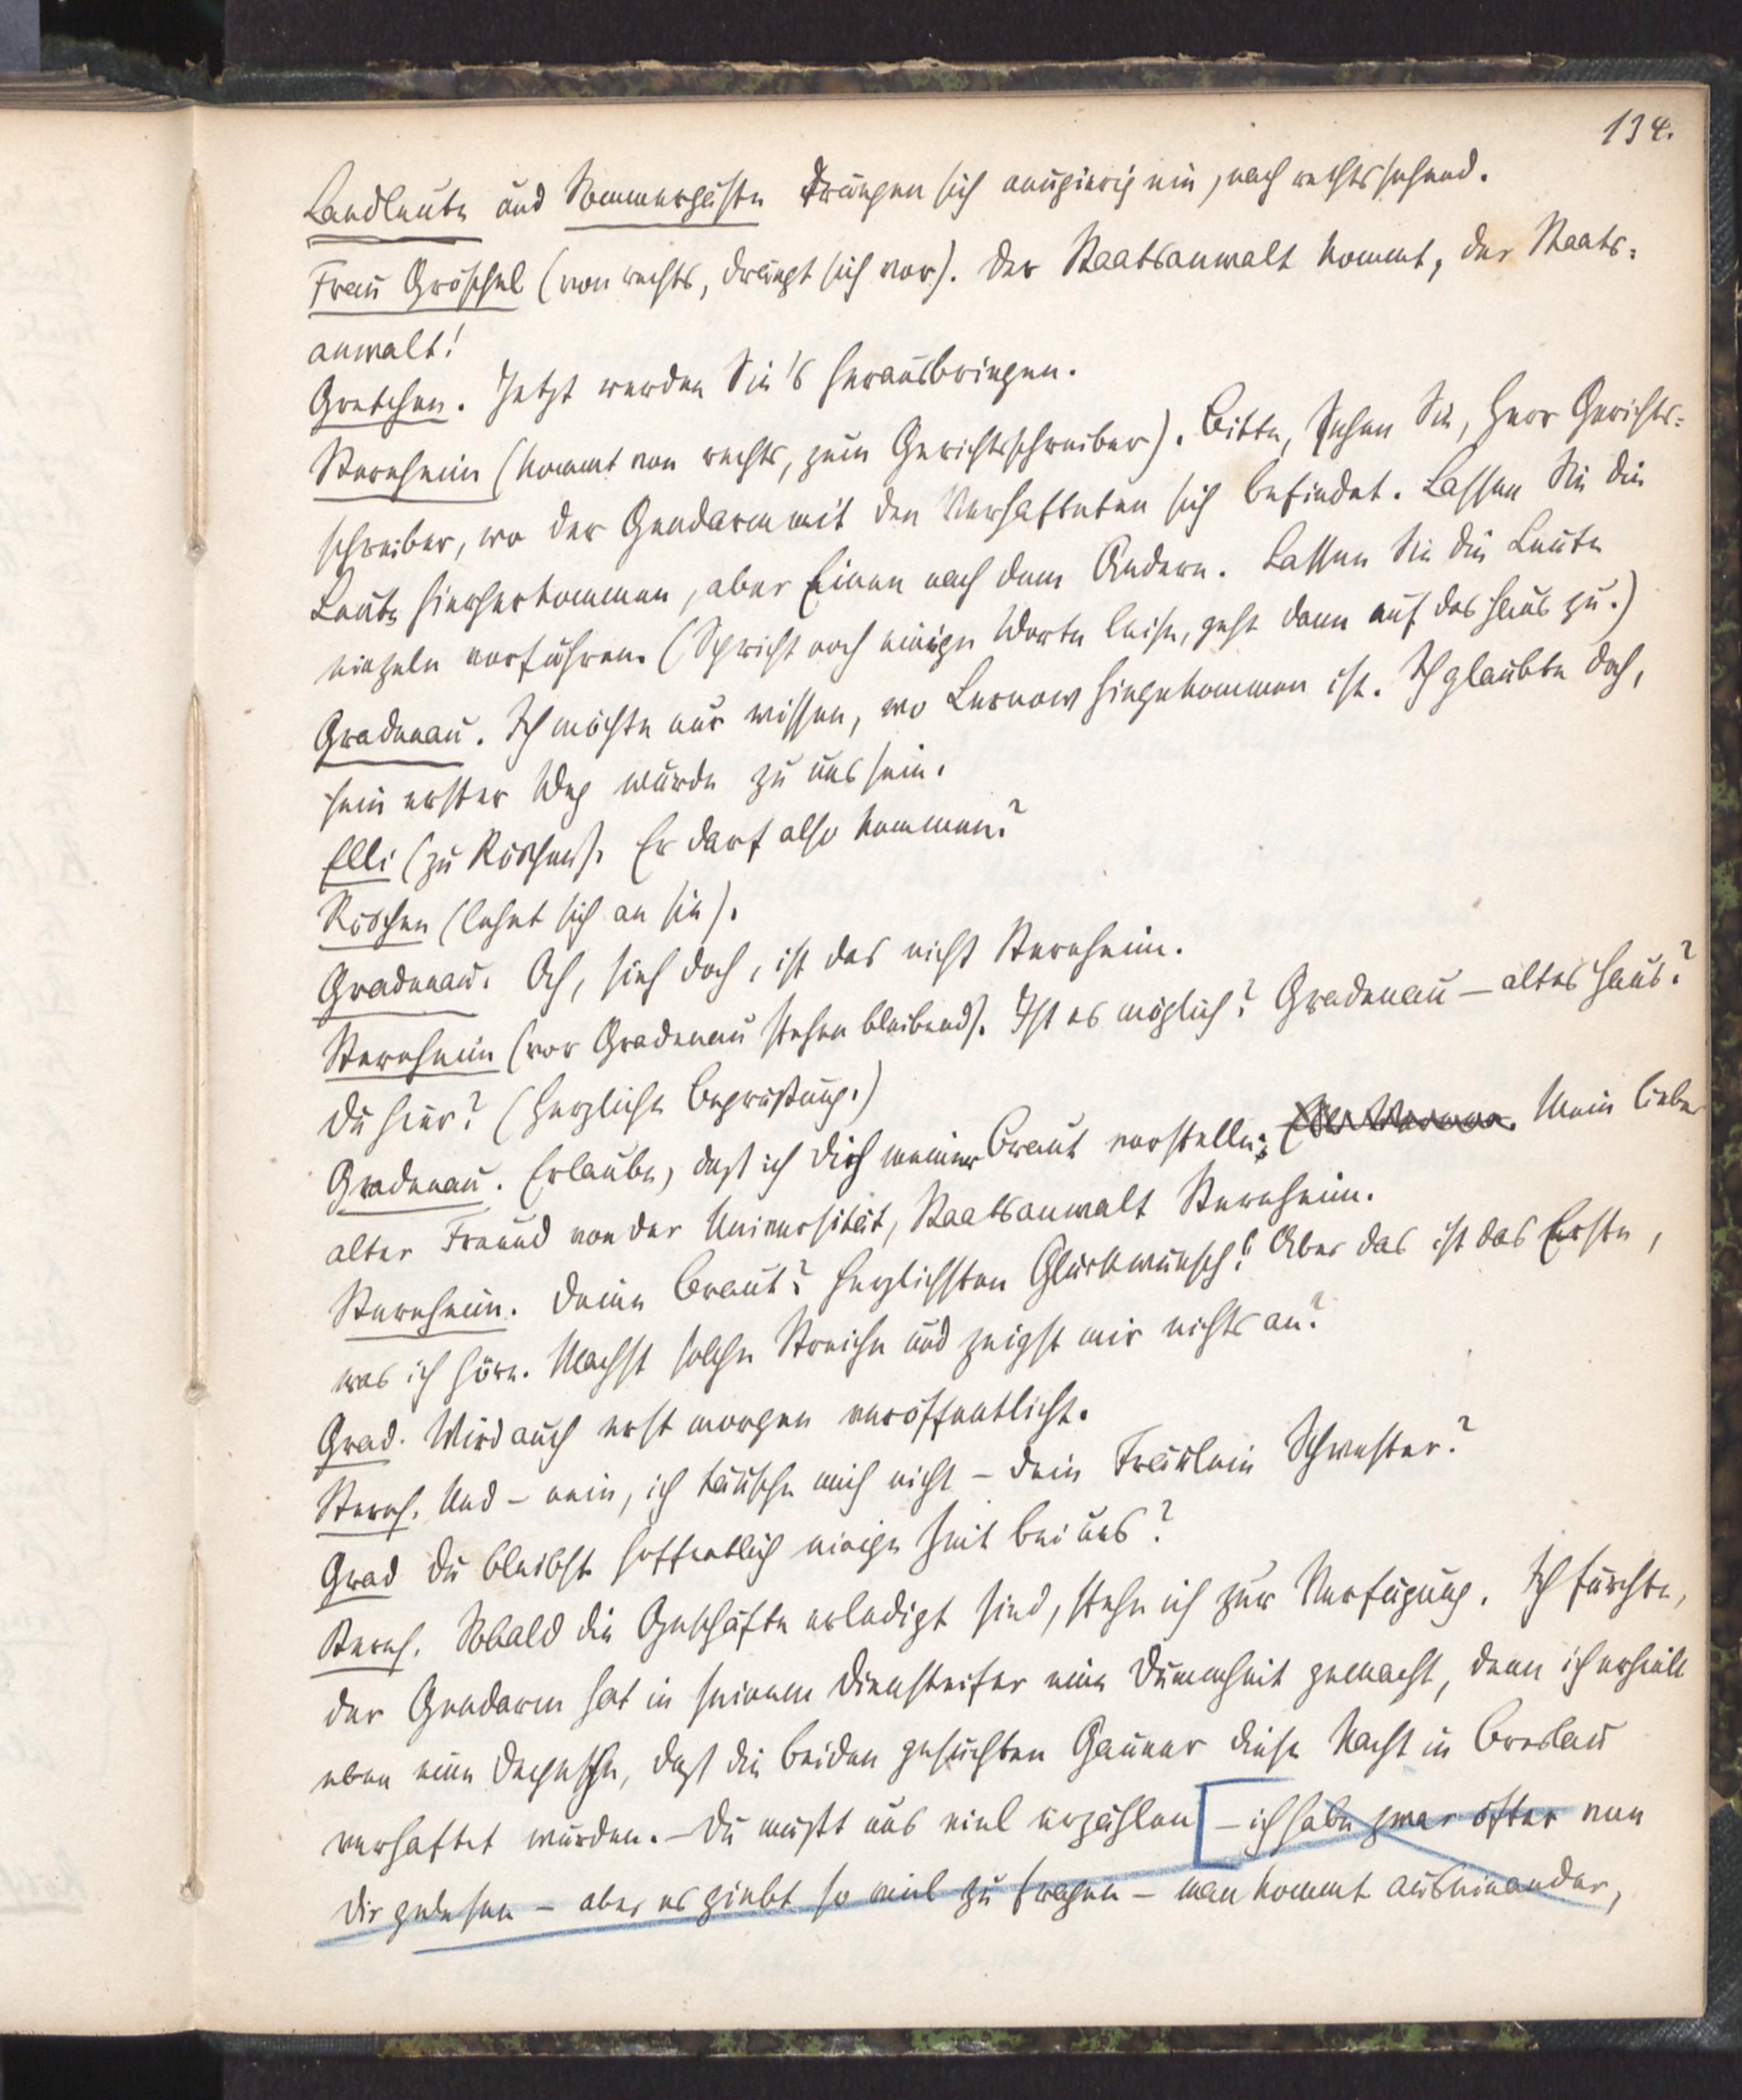 134.
Landleute und Sommergäste drängen sich neugierig ein, nach rechts sehend.
Frau Gröschel (von rechts, drängt sich vor). Der Staatsanwalt kommt, der Staats=
anwalt!
Gretchen. Jetzt werden Sie's herausbringen.
Sternheim (kommt von rechts, zum Gerichtsschreiber). Bitte, sehen Sie, Herr Gerichts=
schreiber, wo der Gendarm mit den Verhafteten sich befindet. Lassen Sie die
Leute hierherkommen, aber Einen nach dem Andern. Lassen Sie die Leute
einzeln vorführen. (Spricht noch einige Worte leise, geht dann auf das Haus zu.)
Gradenau. Ich möchte nur wissen, wo Lernow hingekommen ist. Ich glaubte doch,
sein erster Weg würde zu uns sein.
Elli (zu Röschen). Er darf also kommen?
Röschen (lehnt sich an sie).
Gradenau. Ach, sieh doch, ist das nicht Sternheim.
Sternheim (vor Gradenau stehen bleibend). Ist es möglich? Gradenau – altes Haus?
Du hier? (Herzliche Begrüßung.)
Gradenau. Erlaube, daß ich Dich meiner Braut vorstelle: Mein lieber
alter Freund von der Universität, Staatsanwalt Sternheim.
Sternheim. Deine Braut? Herzlichsten Glückwunsch! Aber das ist das Erste,
was ich höre. Machst solche Streiche und zeigst mir nichts an?
Grad. Wird auch erst morgen veröffentlicht.
Sternh. Und – nein, ich täusche mich nicht – Dein Fräulein Schwester?
Grad Du bleibst hoffentlich einige Zeit bei uns?
Sternh. Sobald die Geschäfte erledigt sind, stehe ich zur Verfügung. Ich fürchte,
der Gendarm hat in seinem Diensteifer eine Dummheit gemacht, denn ich erhielt
eben eine Depesche, daß die beiden gesuchten Gauner diese Nacht in Breslau
verhaftet wurden. – Du mußt uns viel erzählen [– ich habe zwar öfter von
Dir gelesen – aber es giebt so viel zu fragen – man kommt auseinander,